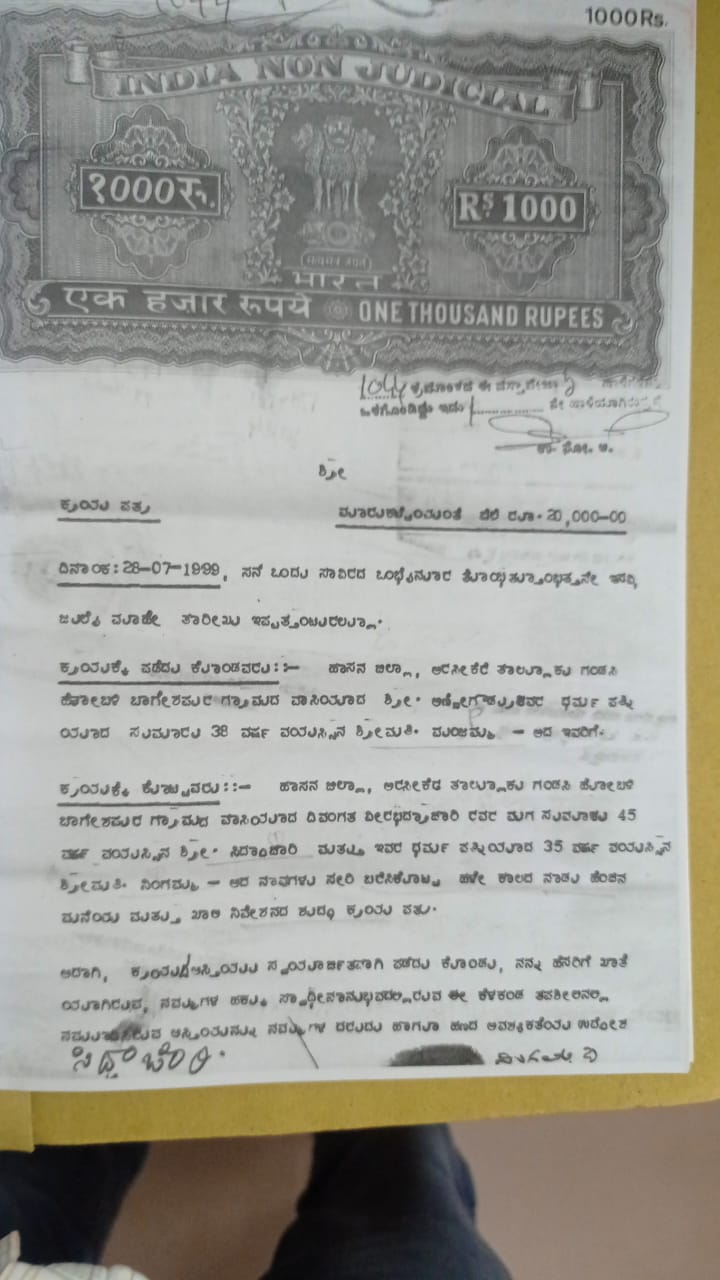 1000Rs.
INDIA NON JUDICIAL
१000रु.
RS 1000
सत्यमेव जयते
भारत
एक हज़ार रूपये ONE THOUSAND RUPEES
1044 ಕ್ರಮಾಂಕದ ಈ ದಸ್ತಾವೇಜು
ಒಳಗೊಂಡಿದ್ದು ಇದು 1 ನೇ ಹಾಳೆಯಾಗಿರುತ್ತದೆ
ಉ. ನೋ. ಅ.
ಶ್ರೀ
ಕ್ರಯದ ಪತ್ರ
ಬೆಲೆ ರೂ. 20,000-00
ದಿನಾಂಕ: 28-07-1999, ಸನೆ ಒಂದು ಸಾವಿರದ ಒಂಭೈನೂರ ತೊಂಭತ್ತೊಂಭತ್ತನೇ ಇಸವಿ
ಜುಲೈ ಮಾಹೇ ತಾರೀಖು ಇಪ್ಪತ್ತೆಂಟರಲ್ಲೂ.
ಕ್ರಯಕ್ಕೆ ಪಡೆದು ಕೊಂಡವರು::- ಹಾಸನ ಜಿಲ್ಲಾ, ಅರಸೀಕೆರೆ ತಾಲ್ಲೂಕು ಗಂಡಸಿ
ಹೋಬಳಿ ಬಾಗೇಶಪುರ ಗ್ರಾಮದ ವಾಸಿಯಾದ ಶ್ರೀ. ಧರ್ಮ ಪತ್ನಿ
ಯಾದ ಸುಮಾರು 38 ವರ್ಷ ವಯಸ್ಸಿನ ಶ್ರೀಮತಿ. ಮಂಜಮ್ಮ - ಆದ ಇವರಿಗೆ.
ಕ್ರಯಕ್ಕೆ ಕೊಟ್ಟವರು::- ಹಾಸನ ಜಿಲ್ಲಾ, ಅರಸೀಕೆರೆ ತಾಲ್ಲೂಕು ಗಂಡಸಿ ಹೋಬಳಿ
ಬಾಗೇಶಪುರ ಗ್ರಾಮದ ವಾಸಿಯಾದ ದಿವಂಗತ ವೀರಭದ್ರಾಚಾರಿ ರವರ ಮಗ ಸುಮಾರು 45
ವರ್ಷ ವಯಸ್ಸಿನ ಶ್ರೀ. ಸಿದ್ದಾಚಾರಿ ಮತ್ತು ಇವರ ಧರ್ಮ ಪತ್ನಿಯಾದ 35 ವರ್ಷ ವಯಸ್ಸಿನ
ಶ್ರೀಮತಿ. ನಿಂಗಮ್ಮ - ಆದ ನಾವುಗಳು ಸೇರಿ ಬರೆಸಿಕೊಟ್ಟ ಹಳೇ ಕಾಲದ ನಾಡು ಹೆಂಚಿನ
ಮನೆಯ ಮತ್ತು ಖಾಲಿ ನಿವೇಶನದ ಶುದ್ಧ ಕ್ರಯದ ಪತ್ರ.
ಅದಾಗಿ, ಸ್ವಯಾರ್ಜಿತವಾಗಿ ಪಡೆದು ಕೊಂಡು, ನನ್ನ ಹೆಸರಿಗೆ ಖಾತೆ
ಯಾಗಿರುವ, ನಮ್ಮಗಳ ಹಕ್ಕು ಸ್ವಾಧೀನಾನುಭವದಲ್ಲಿರುವ ಈ ಕೆಳಕಂಡ ತಪಶೀಲಿನಲ್ಲಿ
ನಮೂದಿಸಿರುವ ಆಸ್ತಿಯನ್ನು ನಮ್ಮಗಳ ದರುದು ಹಾಗೂ ಹಣದ ಅವಶ್ಯಕತೆಯ ಉದ್ದೇಶ
ಸಿದ್ದಾಚಾರಿ.